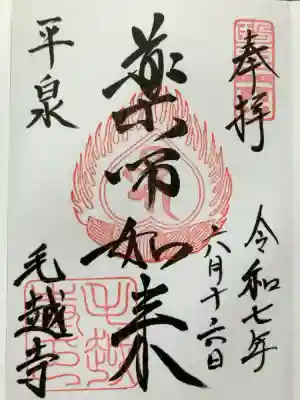 奉拝
令和七年
六月十六日
薬師如来
平泉
毛越寺